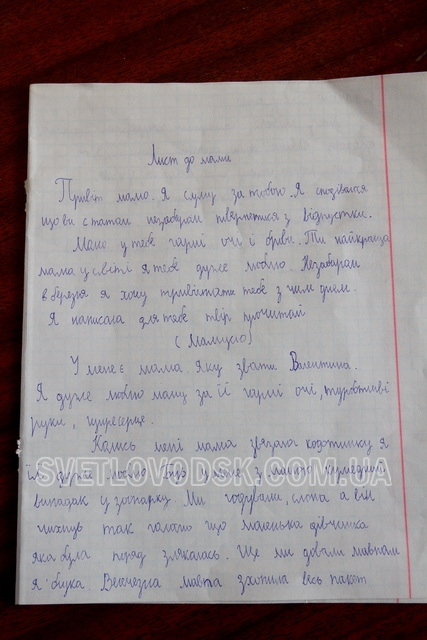 Лист до мами
Привіт мамо. Я сумую за тобою. Я сподіваюся
що ви с татам незабаром повернетися з відпустки.
Мамо у тебе гарні очі і брови. Ти найкраща
мама у світі я тебе дуже люблю. Незабаром
в березня я хочу привітати тебе з ным днем.
Я написала для тебе твір прочитай
(Матусю)
У мене є мама. Яку звати Валентина.
Я дуже люблю маму за її гарні очі, турботливі
руки, щиресерце.
Колись мені мама звязала кофтинку я
її дуже люблю. Був у мене з мамою кумедний
випадок у зоопарку. Ми годували слона а він
чихнув так галосно що маленька дівчинка
яка була перед злякалась. Ще ми довали мавпам
яблука. Величезна мавпа схопила весь пакет
SVETLOVODSK.COM.UA